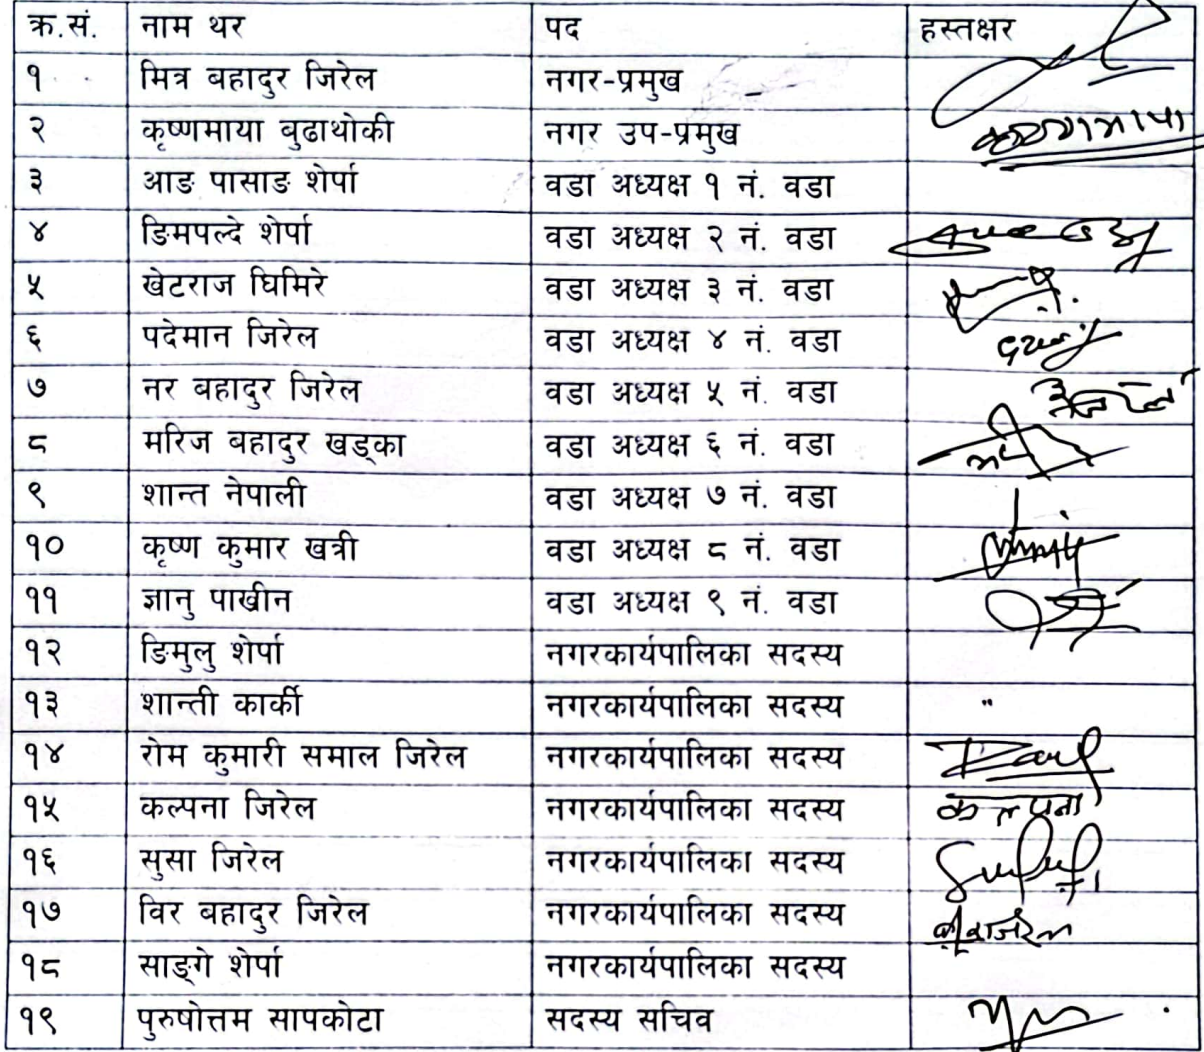 क्र.सं. नाम थर पद हस्तक्षर
१ मित्र बहादुर जिरेल नगर-प्रमुख
२ कृष्णमाया बुढाथोकी नगर उप-प्रमुख
३ आङ पासाङ शेर्पा वडा अध्यक्ष १ नं. वडा
४ ङिमपल्दे शेर्पा वडा अध्यक्ष २ नं. वडा
५ खेटराज घिमिरे वडा अध्यक्ष ३ नं. वडा
६ पदेमान जिरेल वडा अध्यक्ष ४ नं. वडा
७ नर बहादुर जिरेल वडा अध्यक्ष ५ नं. वडा
८ मरिज बहादुर खड्का वडा अध्यक्ष ६ नं. वडा
९ शान्त नेपाली वडा अध्यक्ष ७ नं. वडा
१० कृष्ण कुमार खत्री वडा अध्यक्ष ८ नं. वडा
११ ज्ञानु पाखीन वडा अध्यक्ष ९ नं. वडा
१२ ङिमुलु शेर्पा नगरकार्यपालिका सदस्य
१३ शान्ती कार्की नगरकार्यपालिका सदस्य "
१४ रोम कुमारी समाल जिरेल नगरकार्यपालिका सदस्य
१५ कल्पना जिरेल नगरकार्यपालिका सदस्य कल्पना
१६ सुसा जिरेल नगरकार्यपालिका सदस्य
१७ विर बहादुर जिरेल नगरकार्यपालिका सदस्य
१८ साङ्गे शेर्पा नगरकार्यपालिका सदस्य
१९ पुरुषोत्तम सापकोटा सदस्य सचिव